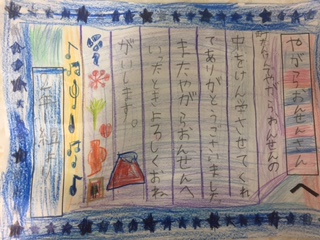 やがらおんせんさんへ
やがらおんせんの
中をけんがくさせてくれ
てありがとうございました
またやがらおんせんへ
いったときよろしくおね
がいします。